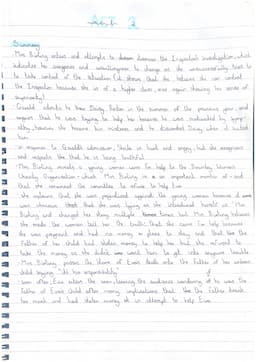 Act 2
Summary
- Mrs Birling enters and attempts to dismiss the Inspectors investigation, which
indicates her arrogance and unwillingness to change as she unsuccessfully tries to
to take control of the situation. It shows that she believes she can control
the Inspector because she is of a higher class, once again showing her sense of
superiority.
- Gerald admits he knew Daisy Renton in the summer of the previous year, and
argues that he was trying to help her because he was motivated by
, however she became his mistress and he discarded Daisy when it suited
him.
- in response to Gerald's admission, Sheila is hurt and angry, but she recognises
and respects the that he is being truthful.
- Mrs Birling reveals a young woman came for help to the Brumley Womens
Charity Organisation - which Mrs Birling is an important member of - and
that she convinced the committee to refuse to help Eva.
- she explains that she was prejudiced against the young woman because it was
was obvious that that she was lying as she introduced herself as 'Mrs
Birling' and changed her story multiple times but Mrs Birling believes
she made the woman tell her the truth: that she came for help because
she was pregnant and had no money or place to stay and that the
Father of her Child had stolen money to help her but she refused to
take the money as she didn't want him to get into anymore trouble.
- Mrs Birling passes the blame of Eva's death onto the Father of her unborn
child saying "it's his responsibility"
- soon after, Eric enters the room, leaving the audience wondering if he was the
Father of Eva's Child after many implications that the Father drank
too much and had stolen money in an attempt to help Eva.